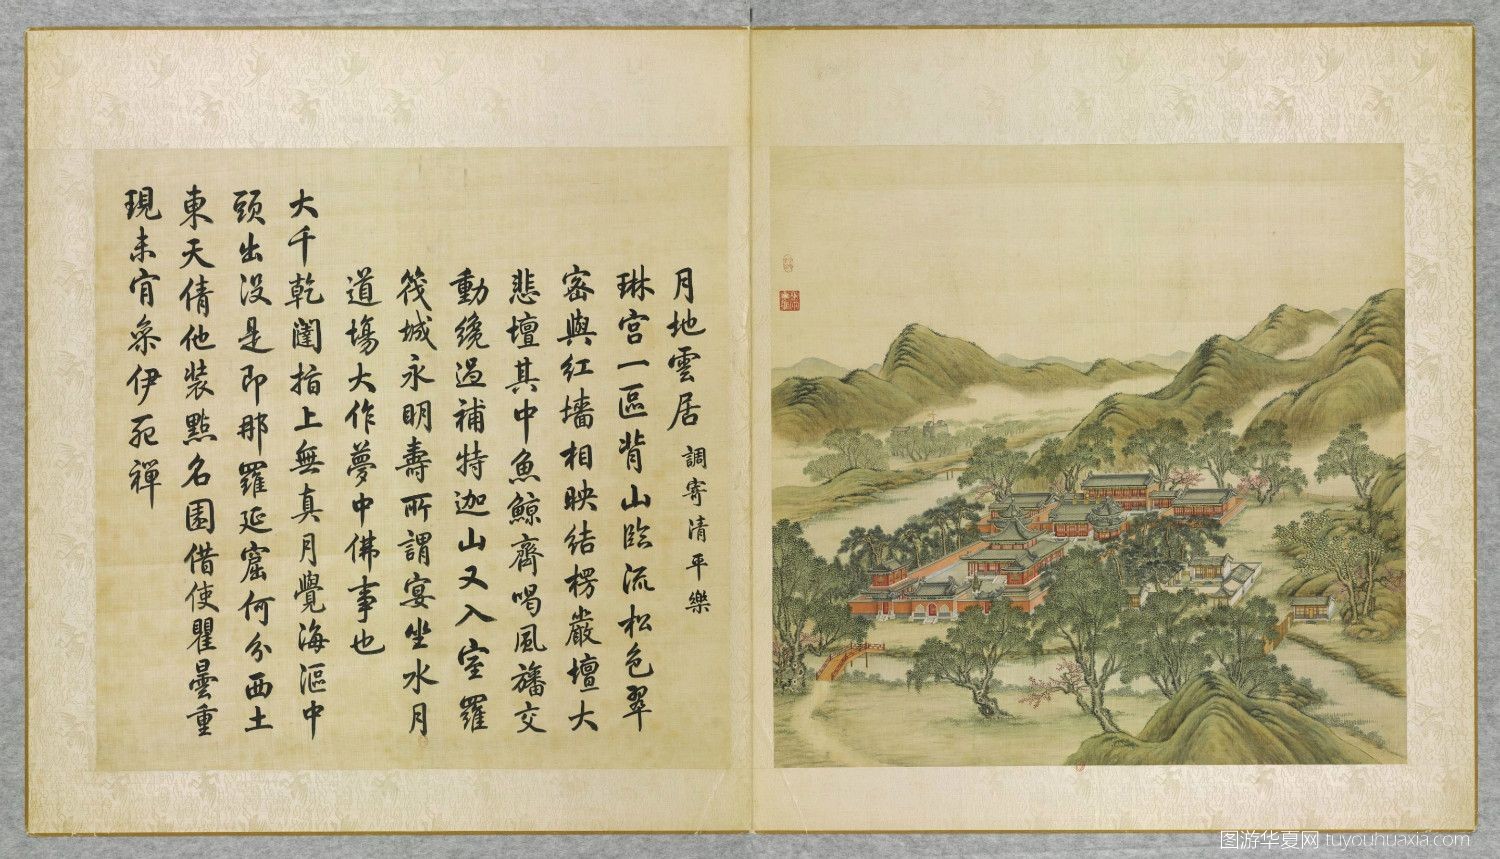 月地雲居 調寄清平樂
琳宫一區背山臨流松色翠
密與紅墻相映结楞嚴壇大
悲壇其中魚鯨齊喝風旛交
動纔過補特迦山又入室羅
筏城永明壽所謂宴坐水月
道塲大作夢中佛事也
大千乾闥指上無真月覺海漚中
頭出没是即那羅延窟何分西土
東天倩他装點名園借使瞿曇重
現未肎叅伊死禪
图游华夏网 tuyouhuaxia.com